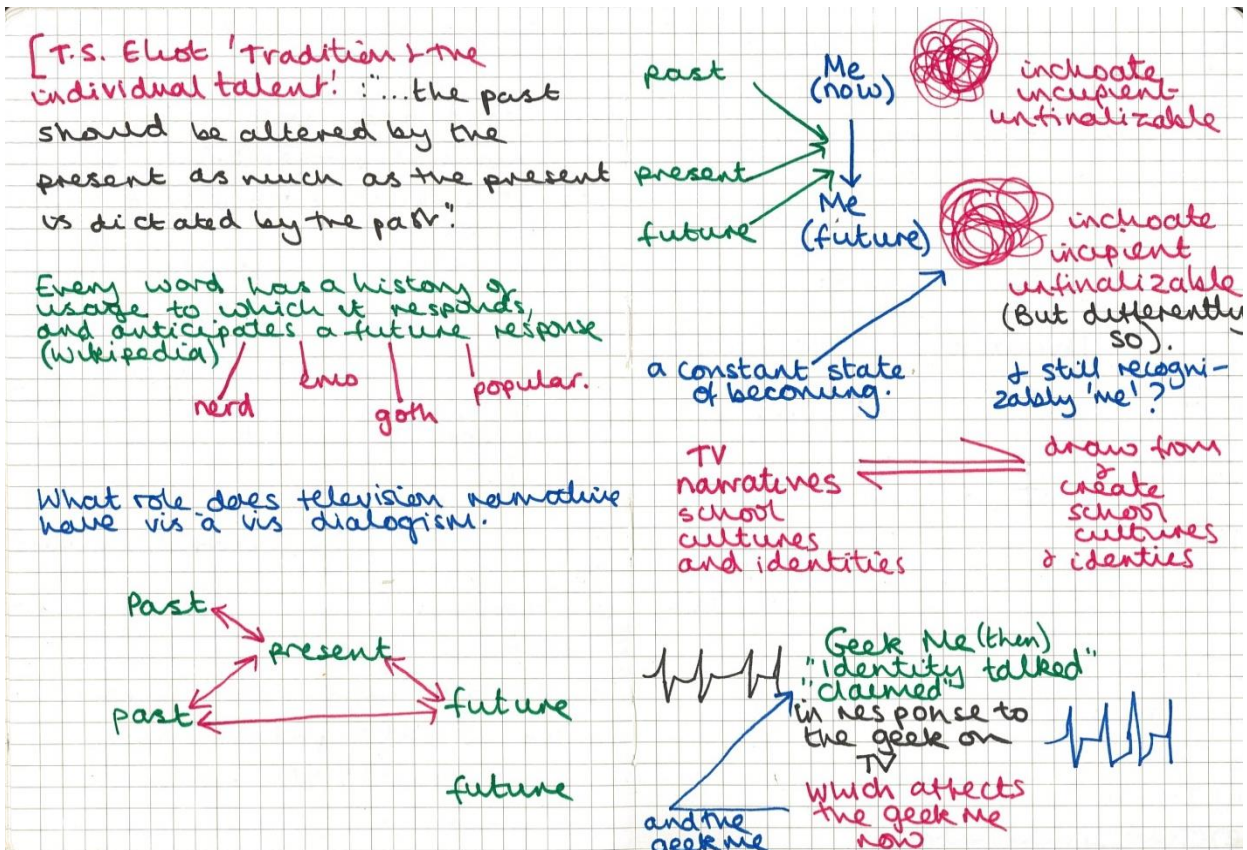 [T.S. Eliot 'Tradition & the
individual talent' : "...the past
should be altered by the
present as much as the present
is dictated by the past."
Every word has a history of
usage to which it responds,
and anticipates a future response
(Wikipedia)
nerd
emo
goth
popular.
What role does television narrative
have vis a vis dialogism.
Past
present
past
future
future
past
present
future
Me
(now)
Me
(future)
inchoate
incipient
unfinalizable
inchoate
incipient
unfinalizable
(But differently
so).
& still recogni-
zably 'me'?
a constant state
of becoming.
TV
narratives
school
cultures
and identities
draw from
&
create
school
cultures
& identies
Geek Me (then)
"Identity talked"
"claimed"
in response to
the geek on
TV
which affects
the geek Me
now
and the
geek me